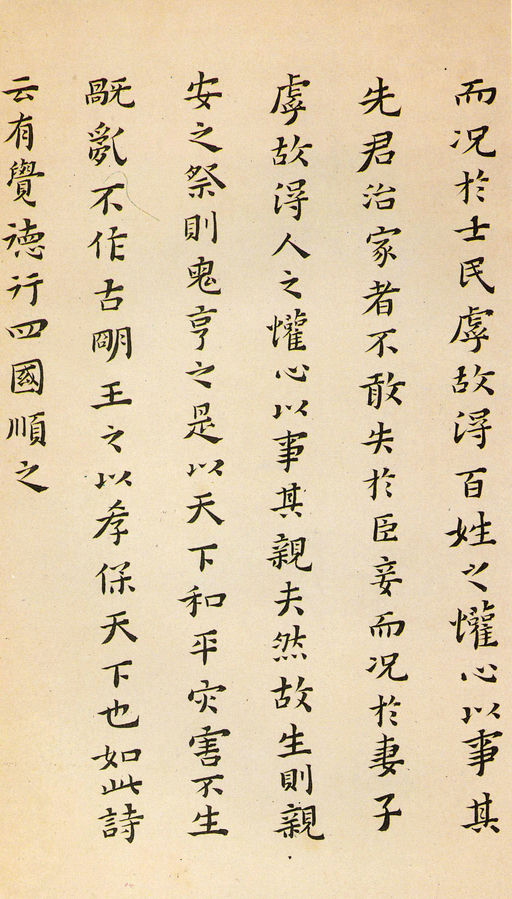 而况於士民虖故得百姓之懽心以事其
先君治家者不敢失於臣妾而况於妻子
虖故得人之懽心以事其親夫然故生則親
安之祭則鬼亨之是以天下和平灾害不生
旤亂不作古朙王之以孝保天下也如此詩
云有覺德行四國順之